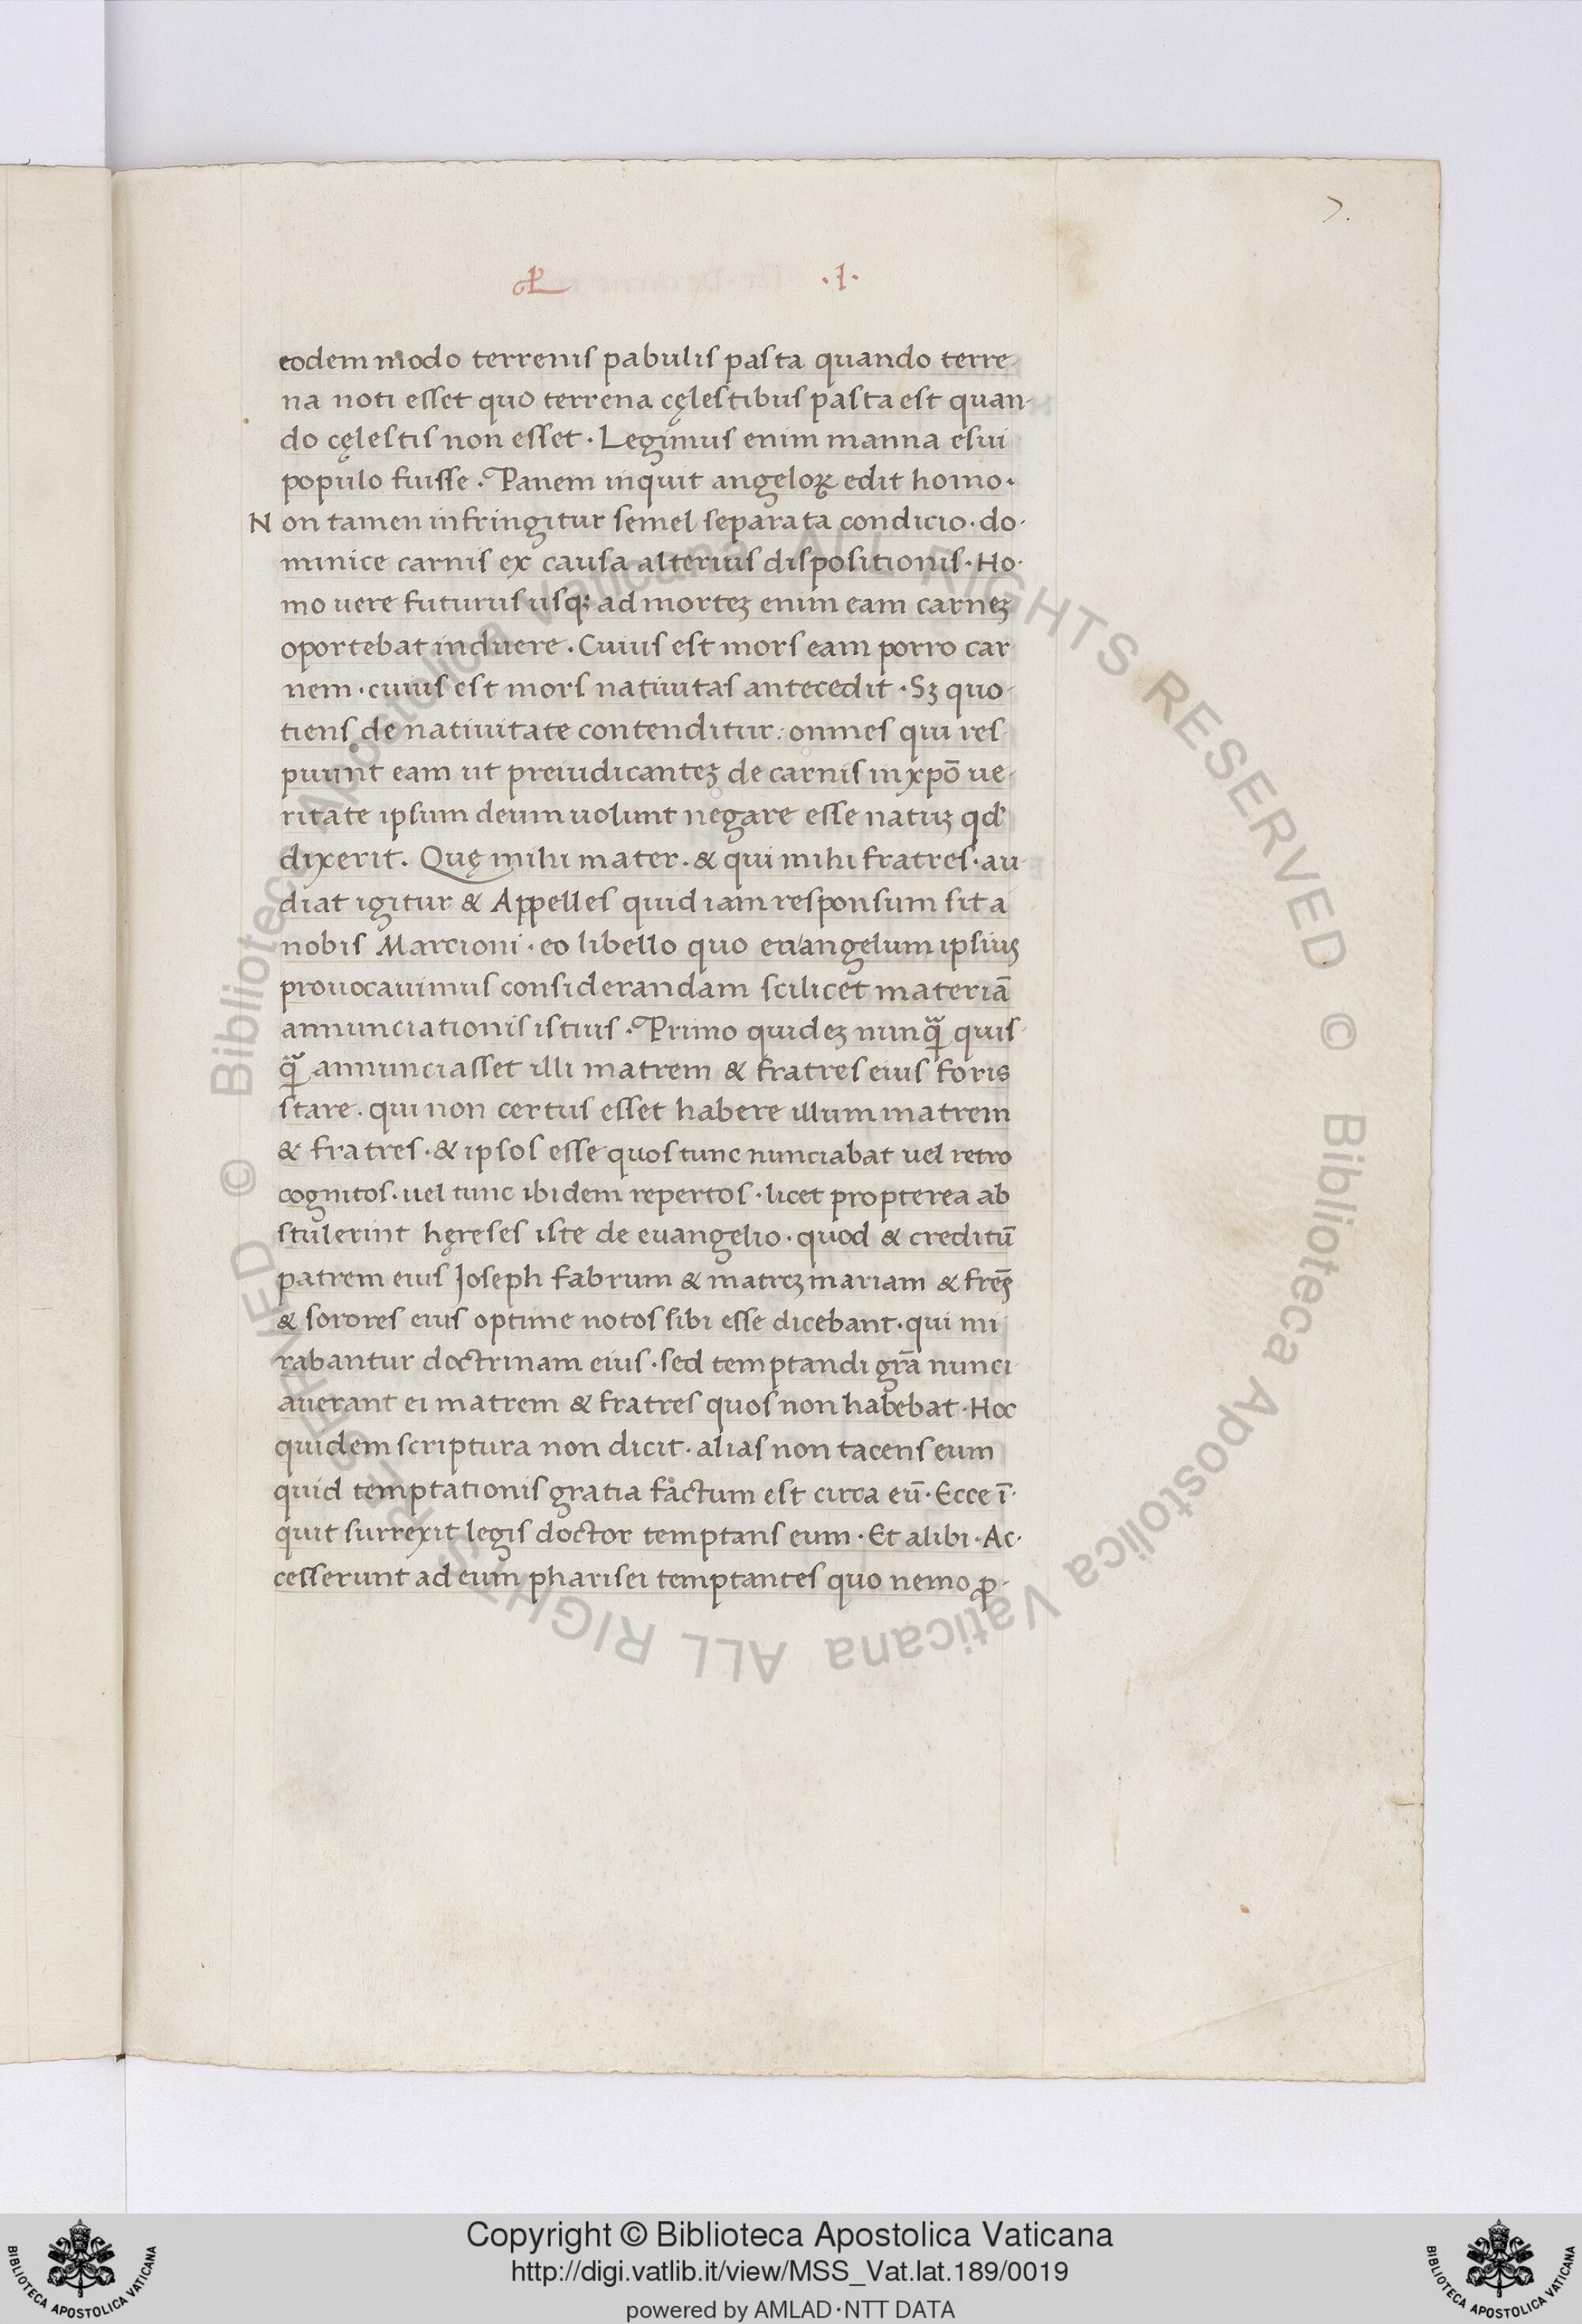 7.
·I·
eodem modo terrenis pabulis pasta quando terre-
na noti esset quo terrena cęlestibus pasta est quan-
do cęlestis non esset · Legimus enim manna esui
populo fuisse · Panem inquit angeloꝝ edit homo ·
Non tamen infringitur semel separata condicio · do-
minice carnis ex causa alterius dispositionis · Ho-
mo uere futurus usqꝫ ad morteꝫ enim eam carneꝫ
oportebat induere . Cuius est mors eam porro car
nem · cuius est mors natiuitas antecedit · Sꝫ quo-
tiens de natiuitate contenditur : omnes qui res-
puunt eam ut preiudicanteꝫ de carnis in xpō ue-
ritate ipsum deum uolunt negare esse natuꝫ qđ
dixerit . Quę mihi mater . & qui mihi fratres · au-
diat igitur & Appelles quid iam responsum sit a
nobis Marcioni · eo libello quo euangelum ipsius
prouocauimus considerandam scilicet materiā
annunciationis istius · Primo quideꝫ nunqᷓ quis-
qᷓ annunciasset illi matrem & fratres eius foris
stare . qui non certus esset habere illum matrem
& fratres · & ipsos esse quos tunc nunciabat uel retro
cognitos · uel tunc ibidem repertos · licet propterea ab
stulerint hęreses iste de euangelio · quod & creditū
patrem eius Joseph fabrum & matreꝫ mariam & frēs
& sorores eius optime notos sibi esse dicebant · qui mi
rabantur doctrinam eius · sed temptandi grā nunci-
auerant ei matrem & fratres quos non habebat · Hoc
quidem scriptura non dicit · alias non tacens eum
quid temptationis gratia factum est circa eū · Ecce ī-
quit surrexit legis doctor temptans eum · Et alibi · Ac-
cesserunt ad eum pharisei temptantes quo nemo ꝓ-
© Biblioteca Apostolica Vaticana ALL RIGHTS RESERVED © Biblioteca Apostolica Vaticana ALL RIGHTS RESERVED
Copyright © Biblioteca Apostolica Vaticana
http://digi.vatlib.it/view/MSS_Vat.lat.189/0019
powered by AMLAD·NTT DATA
BIBLIOTECA APOSTOLICA VATICANA
BIBLIOTECA APOSTOLICA VATICANA